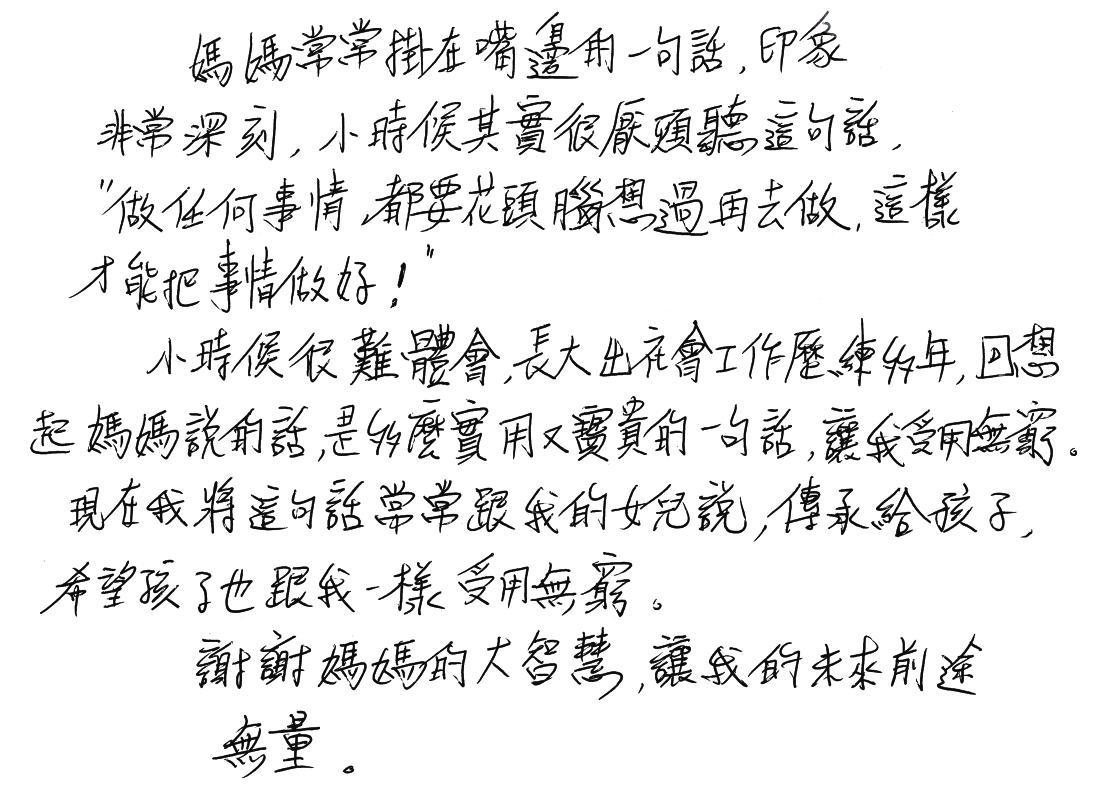 媽媽常常掛在嘴邊的一句話,印象
非常深刻,小時候其實很厭煩聽這句話,
"做任何事情,都要花頭腦想過再去做,這樣
才能把事情做好!"
小時候很難體會,長大出社會工作歷練多年,回想
起媽媽說的話,是多麼實用又寶貴的一句話,讓我受用無窮。
現在我將這句話常常跟我的女兒說,傳承給孩子,
希望孩子也跟我一樣受用無窮。
謝謝媽媽的大智慧,讓我的未來前途
無量。